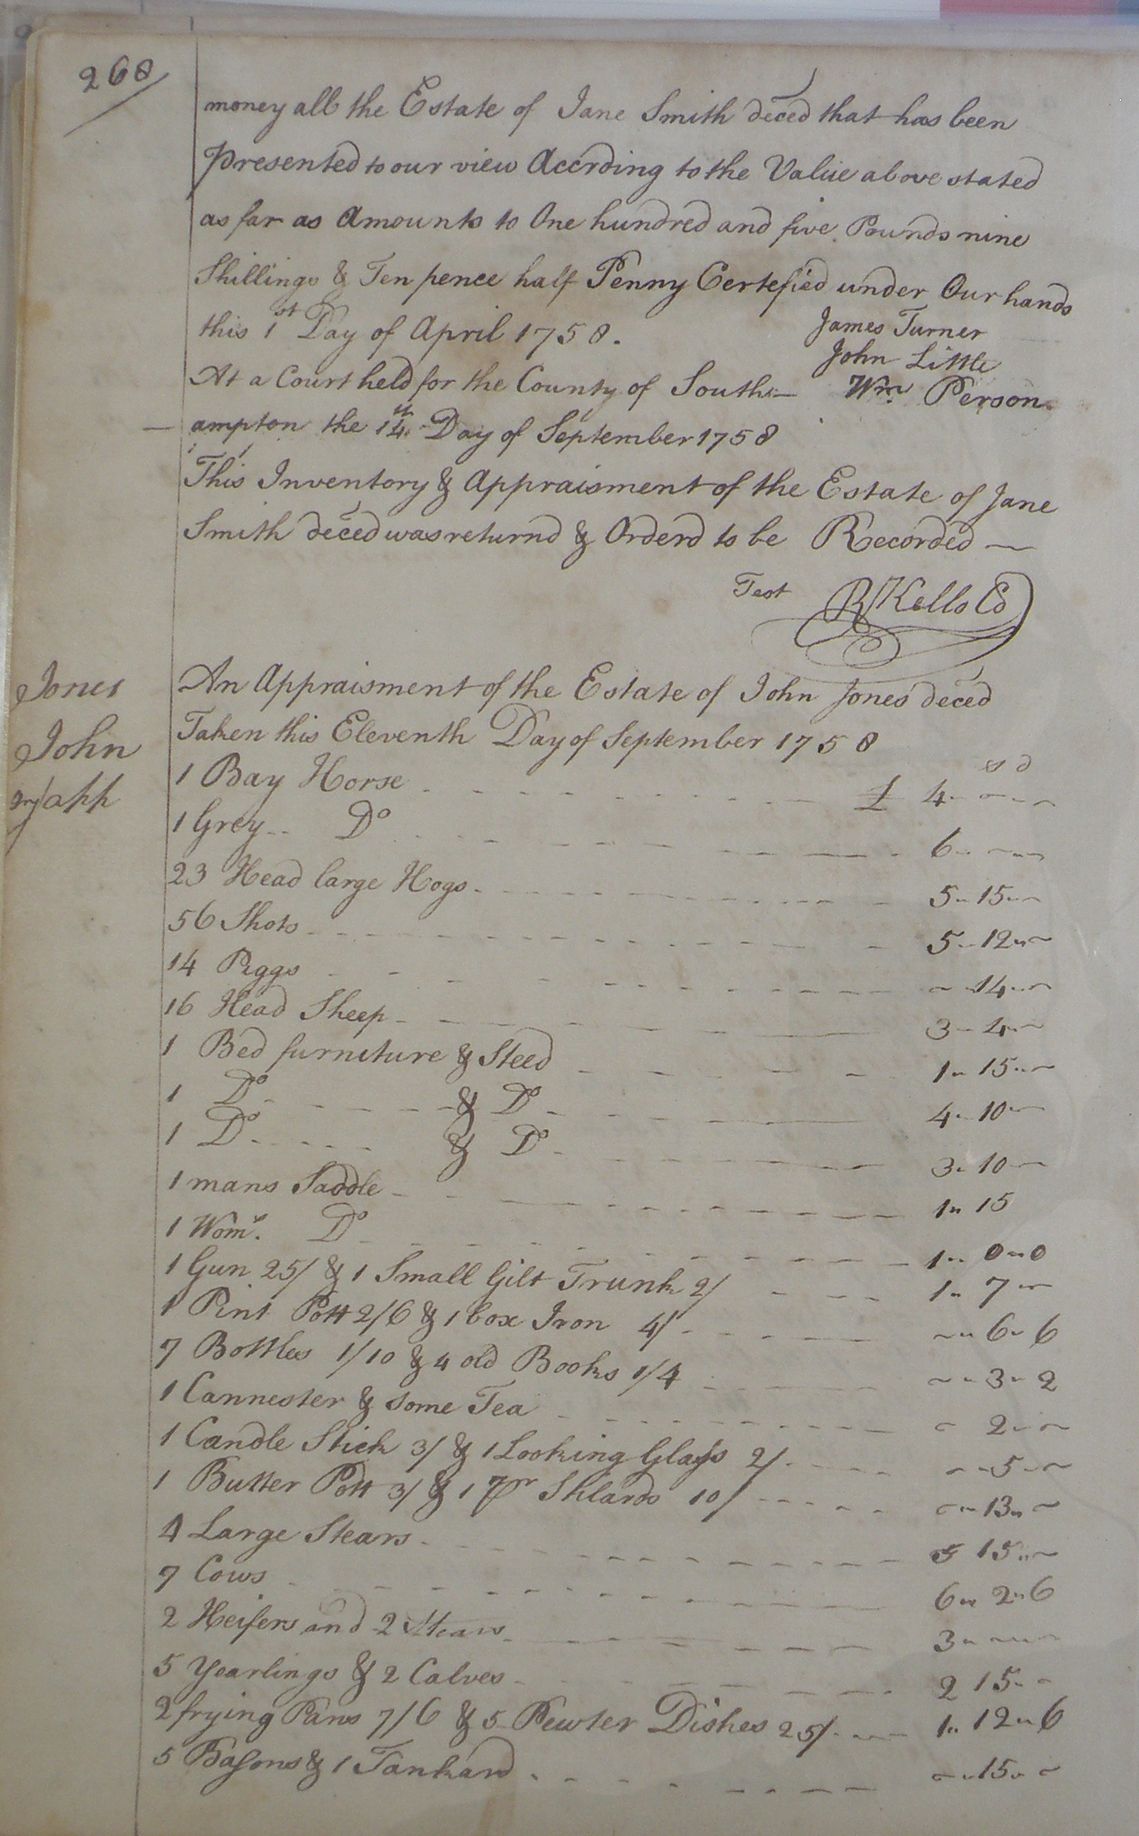 268
money all the Estate of Jane Smith deced that has been
presented to our view Accrding to the Value above stated
as far as Amounts to One hundred and five Pounds nine
Shillings & Ten pence half Penny Certefied under Our hands
this 1st Day of April 1758.
James Turner
John Little
Wm Person
At a Court held for the County of South-
ampton the 14th Day of September 1758
This Inventory & Appraisment of the Estate of Jane
Smith deced was returnd & Orderd to be Recorded —
Test R Kello Cl
Jones
John
An Appraisment of the Estate of John Jones deced
Taken this Eleventh Day of September 1758
s d
1 Bay Horse £ 4 - -
1 Grey Do 6 - -
23 Head large Hogs 5 - 15 -
56 Shots 5 - 12 -
14 Piggs - 14 -
16 Head Sheep 3 - 4 -
1 Bed furniture & Steed 1 - 15 -
1 Do & Do 4 - 10 -
1 Do & Do 3 - 10 -
1 mans Saddle 1 " 15
1 Woms. Do 1 - 0 - 0
1 Gun 25/ & 1 Small Gilt Trunk 2/ 1 - 7 -
1 Pint Pott 2/6 & 1 box Iron 4/ - 6 - 6
7 Bottles 1/10 & 4 old Books 1/4 - 3 - 2
1 Cannester & some Tea - 2 - -
1 Candle Stick 3/ & 1 Looking Glass 2/ - 5 -
1 Butter Pott 3/ & 1 pr Stilards 10/ - 13 -
4 Large Stears 5 15 -
7 Cows 6 - 2 - 6
2 Heifers and 2 Stears 3 - -
5 Yearlings & 2 Calves 2 15 -
2 frying Pans 7/6 & 5 Pewter Dishes 25/ 1 " 12 - 6
5 Basons & 1 Tankard - 15 -